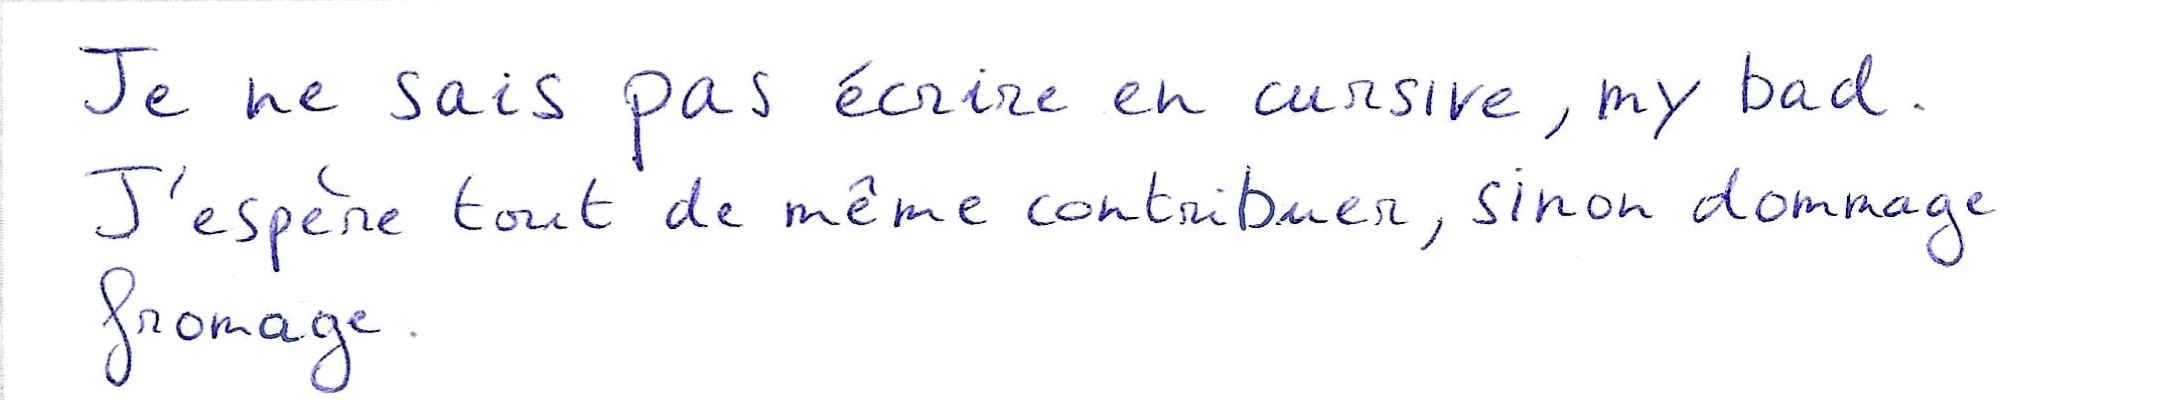 Je ne sais pas écrire en cursive, my bad.
J'espère tout de même contribuer, sinon dommage
fromage.